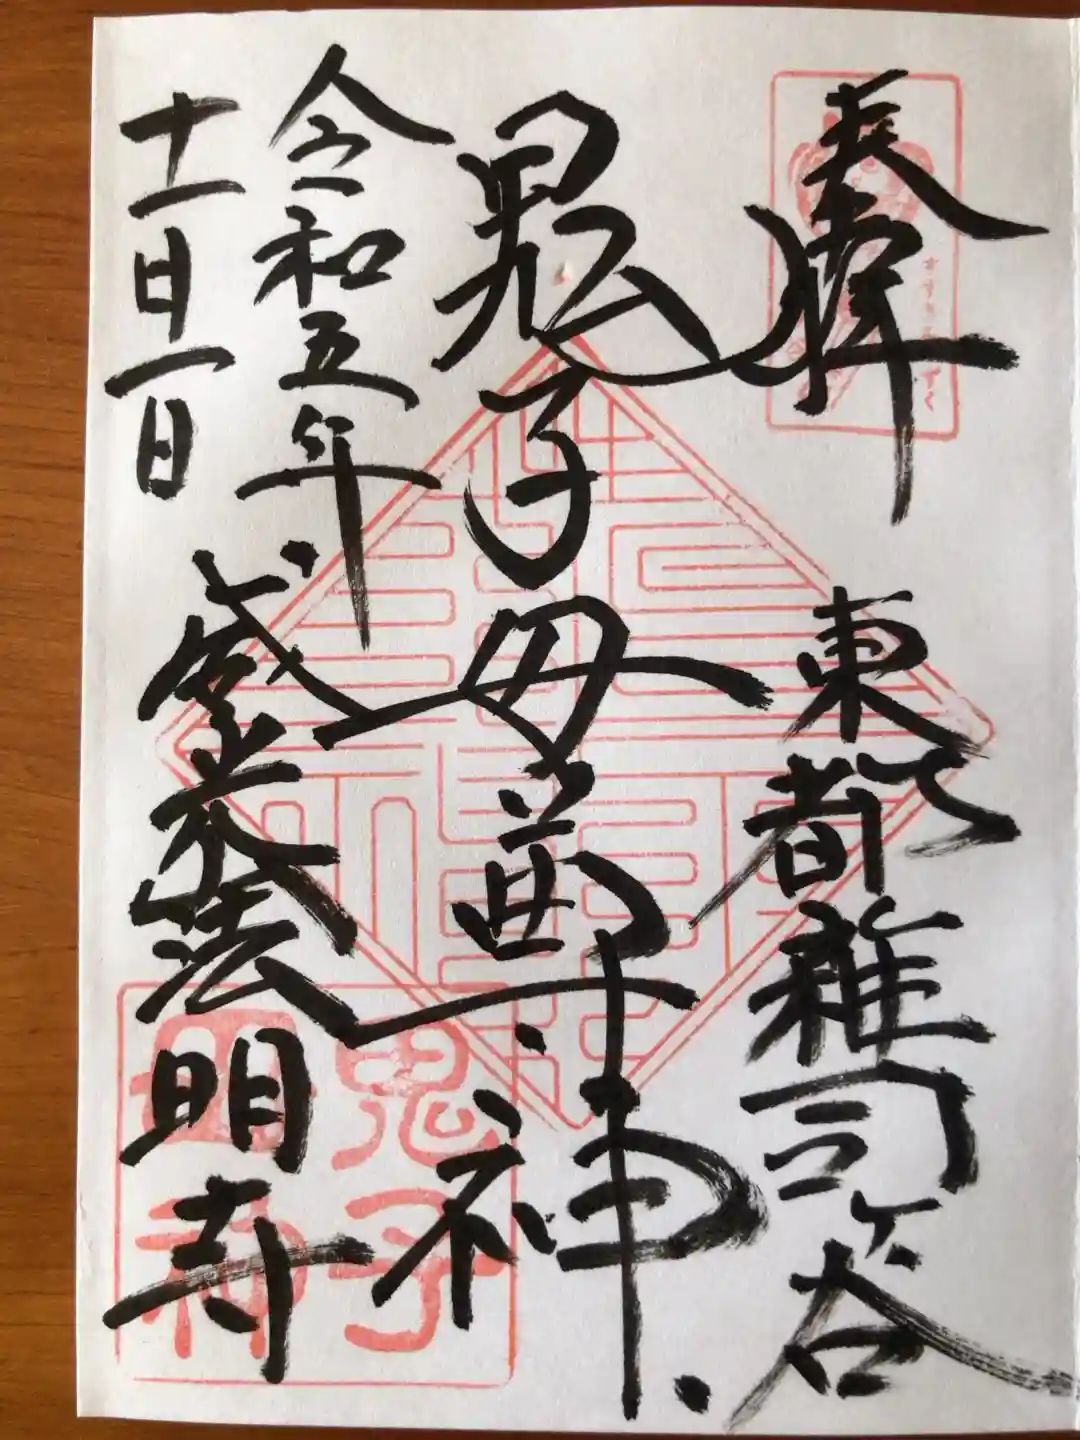 奉拝
すすきみみずく
東都雑司ケ谷
鬼子母尊神
令和五年
十一月一日
法明寺
鬼子
母神